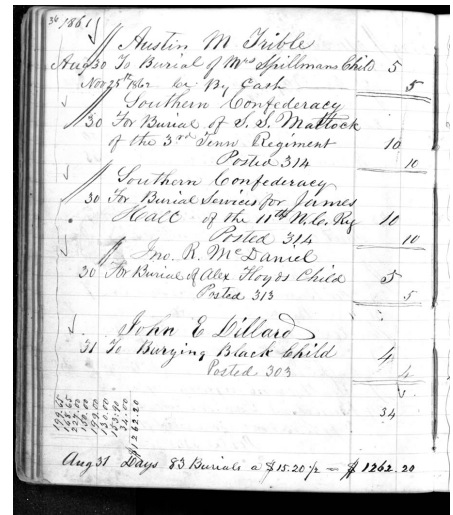 36 1861
Austin M Trible
Aug 30 To Burial of Mrs Spillmans Child 5
Nov 25th 1862 By Cash 5
Southern Confederacy
30 For Burial of S. S. Mattock
of the 3rd Tenn Regiment 10
Posted 314 10
Southern Confederacy
30 For Burial Services for James
Hall of the 11th N.C. Reg 10
Posted 314 10
Jno. R. McDaniel
30 For Burial of Alex Floyds Child 5
Posted 313 5
John E Dillard
31 To Burying Black Child 4
Posted 303 4
34
199.65
168.65
227.00
130.00
199.00
130.00
34.00
$1262.20
Aug 31 Days 83 Burials a $15.20 1/2 = $1262.20